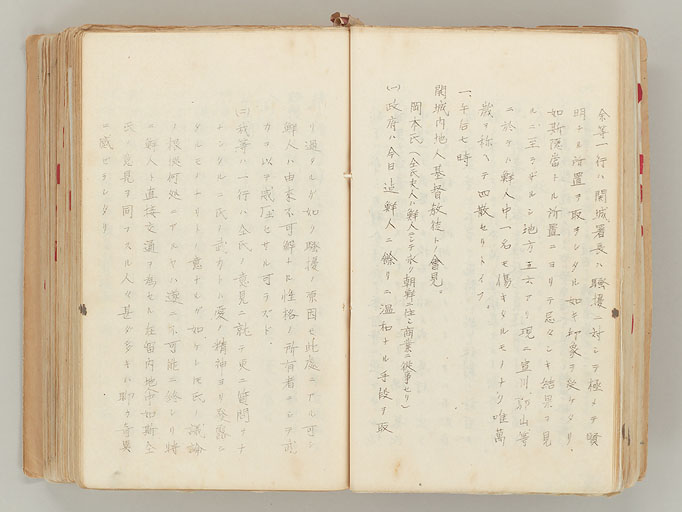 余等一行ハ開城署長ハ騒擾ニ対シテ極メテ賢
明ナル所置ヲ取ラレタル如キ印象ヲ受ケタリ、
如斯穏当ナル所置ニヨリテ忌ハシキ結果ヲ見
ルニ至ラザルシ地方五六アリ現ニ宣川郭山等
ニ於テハ鮮人中一名モ傷キタルモノナク唯萬
歳ヲ称ヘテ四散セリトイフ。
一、午后七時
開城内地人基督教徒トノ會見。
岡本氏(仝氏夫人ハ鮮人ニシテ永ク朝鮮ニ住ミ商業ニ従事セリ)
(一)政府ハ今日迄鮮人ニ餘リニ温和ナル手段ヲ取
リ過タルガ如シ騒擾ノ原因モ此處ニアル可シ
鮮人ハ由来不可解ナル性格ノ所有者ナレバ
力ヲ以テ威圧セザル可ラズト.
(二)我等ハ一行ハ仝氏ノ意見ニ就テ更ニ質問ヲナ
シタルニ氏ノ武力トハ
タルモノナリトノ意ナルガ如ケレ氏ノ議論
ノ根拠何処ニアルヤハ遂ニ不可能ニ餘レリ将
ニ鮮人ト直接交通ヲ為セル在留内地中如斯仝
氏ノ意見ヲ同フスル人々甚ダ多キハ聊カ奇異
ニ感ゼラレタリ